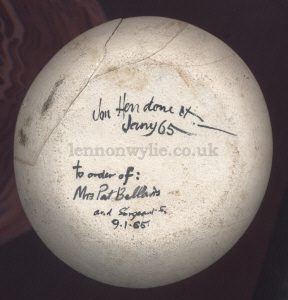 Jon Hen done it
Jany 65
lennonwylie.co.uk
to order of:
Mrs Pat Bellard
and Sergeant
9.1.65